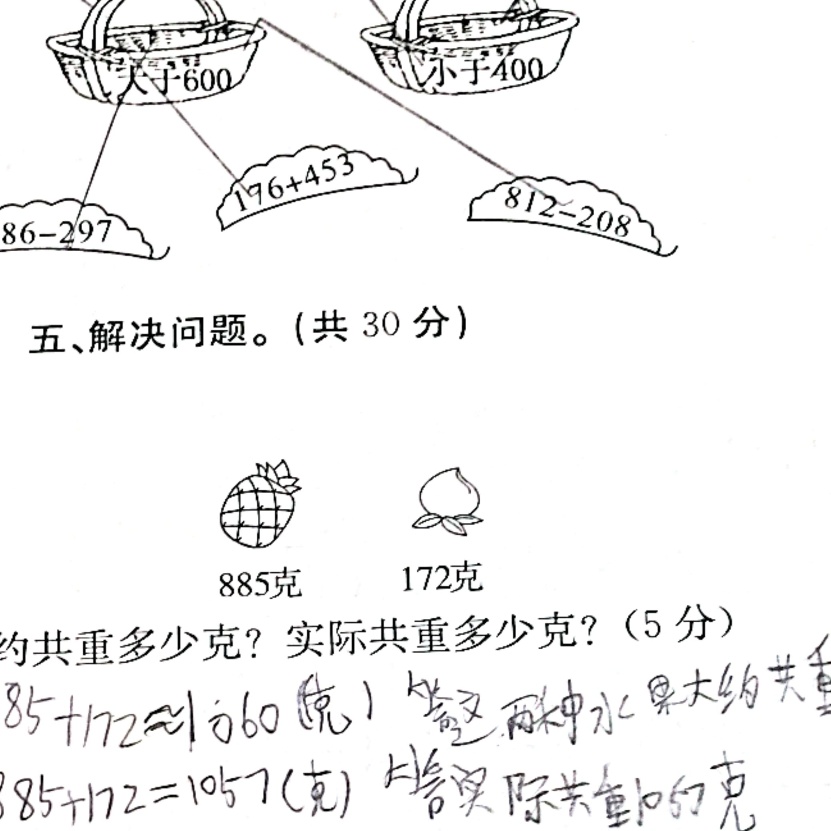 大于600 小于400
86-297 176+453 812-208
五、解决问题。(共 30 分)
885克 172克
约共重多少克？实际共重多少克？(5 分)
85+172≈1060(克) 答这两种水果大约共重
885+172=1057(克) 答实际共重1057克